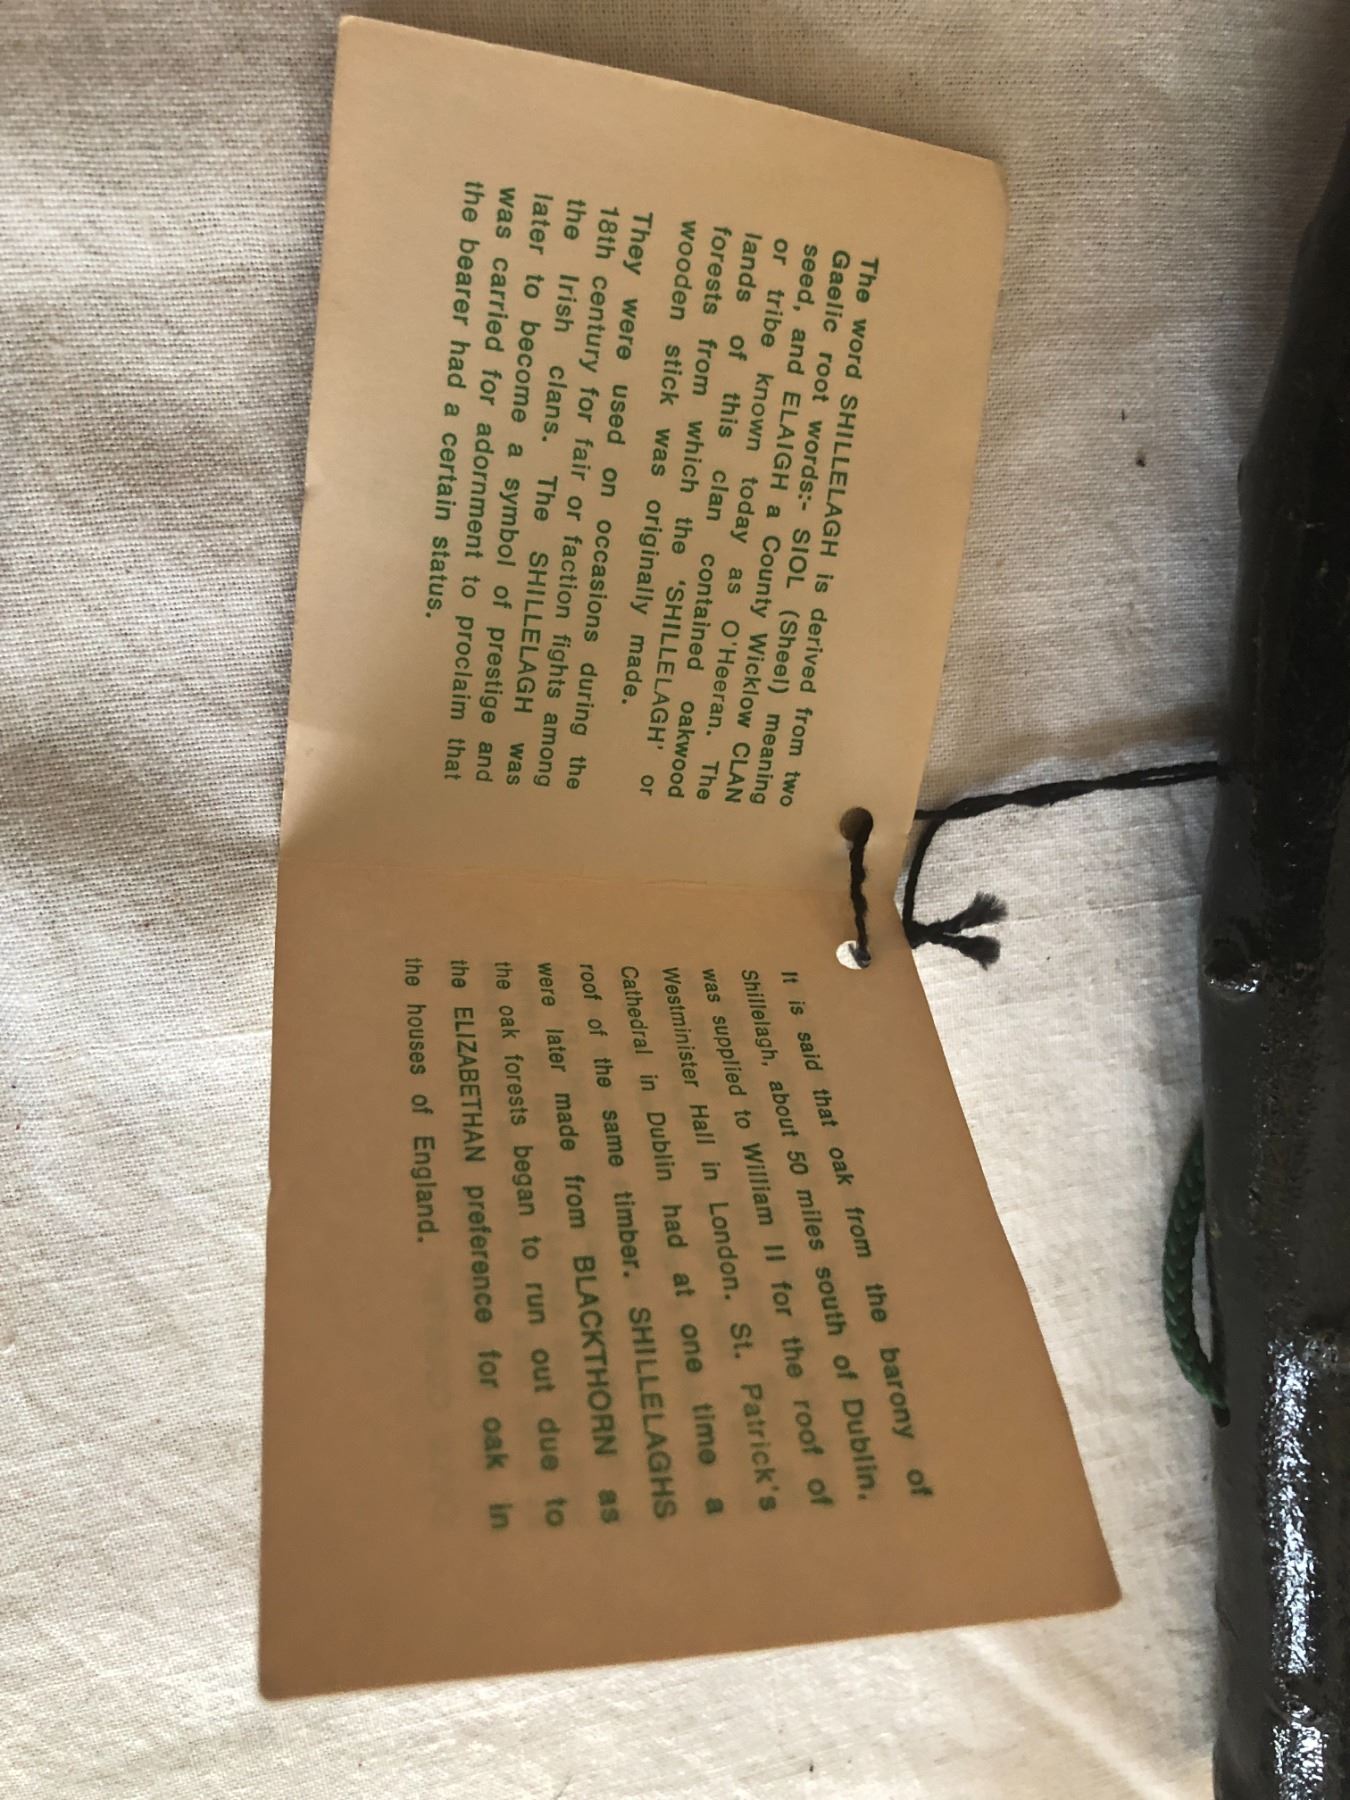 The word SHILLELAGH is derived from two
Gaelic root words:- SIOL (Sheel) meaning
seed, and ELAIGH a County Wicklow CLAN
or tribe known today as O'Heeran. The
lands of this clan contained oakwood
forests from which the 'SHILLELAGH' or
wooden stick was originally made.
They were used on occasions during the
18th century for fair or faction fights among
the Irish clans. The SHILLELAGH was
later to become a symbol of prestige and
was carried for adornment to proclaim that
the bearer had a certain status.
It is said that oak from the barony of
Shillelagh, about 50 miles south of Dublin,
was supplied to William II for the roof of
Westminister Hall in London. St. Patrick's
Cathedral in Dublin had at one time a
roof of the same timber. SHILLELAGHS
were later made from BLACKTHORN as
the oak forests began to run out due to
the ELIZABETHAN preference for oak in
the houses of England.